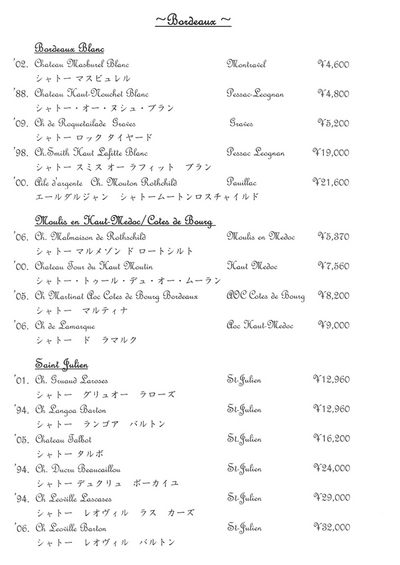 ～Bordeaux～
Bordeaux Blanc
'02. Chateau Masburel Blanc Montravel ¥4,600
シャトー マスビュレル
'88. Chateau Haut-Nouchet Blanc Pessac-Leognan ¥4,800
シャトー・オー・ヌシュ・ブラン
'09. Ch de Roquetailade Graves Graves ¥5,200
シャトー ロック タイヤード
'98. Ch.Smith Haut Lafitte Blanc Pessac Leognan ¥19,000
シャトー スミス オー ラフィット ブラン
'00. Aile d'argente Ch. Mouton Rothchild Pauillac ¥21,600
エールダルジャン シャトームートンロスチャイルド
Moulis en Haut-Medoc/Cotes de Bourg
'06. Ch. Malmaison de Rothschild Moulis en Medoc ¥5,370
シャトー マルメゾン ド ロートシルト
'00. Chateau Tour du Haut Moutin Haut Medoc ¥7,560
シャトー・トゥール・デュ・オー・ムーラン
'05. Ch Martinat Aoc Cotes de Bourg Bordeaux AOC Cotes de Bourg ¥8,200
シャトー マルティナ
'06. Ch de Lamarque Aoc Haut-Medoc ¥9,000
シャトー ド ラマルク
Saint Julien
'01. Ch. Gruaud Laroses St-Julien ¥12,960
シャトー グリュオー ラローズ
'94. Ch Langoa Barton St-Julien ¥12,960
シャトー ランゴア バルトン
'05. Chateau Talbot St-Julien ¥16,200
シャトー タルボ
'94. Ch. Ducru Beaucaillou St-Julien ¥24,000
シャトー デュクリュ ボーカイユ
'94. Ch Leoville Lascases St-Julien ¥29,000
シャトー レオヴィル ラス カーズ
'06. Ch Leoville Barton St-Julien ¥32,000
シャトー レオヴィル バルトン